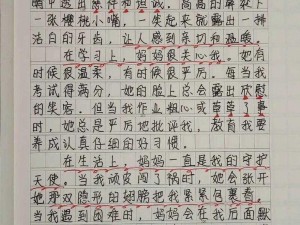 睛中透出慈祥和坦诚。高高的鼻梁下
一张樱桃小嘴，一笑起来就露出一排
洁白的牙齿，让人感到亲切和温暖。
在学习上，妈妈很关心我。她有
时候很温柔，有时候很严厉。每当我
考试得满分，她的脸上总会露出欣慰
的笑容。但当我作业粗心或草草了事
时，她总是严厉地批评我，教育我要
养成认真仔细的好习惯。
在生活上，妈妈一直是我的守护
天使。当我顽皮闯了祸时，她会张开
她那双隐形的翅膀把我紧紧包裹着。
当我遇到困难时，妈妈会在后面默